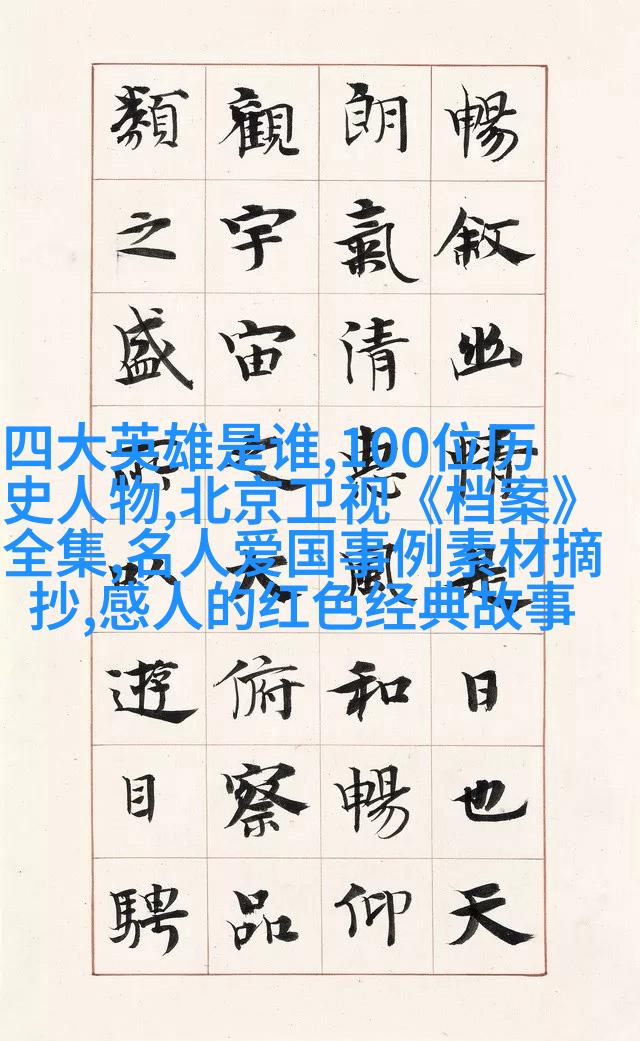 暢敘幽情是日也天
朗氣清惠風和暢仰
觀宇宙之大俯察品
類之盛所以遊目騁
四大英雄是谁,100位历
史人物,北京卫视《档案》
全集,名人爱国事例素材摘
抄,感人的红色经典故事